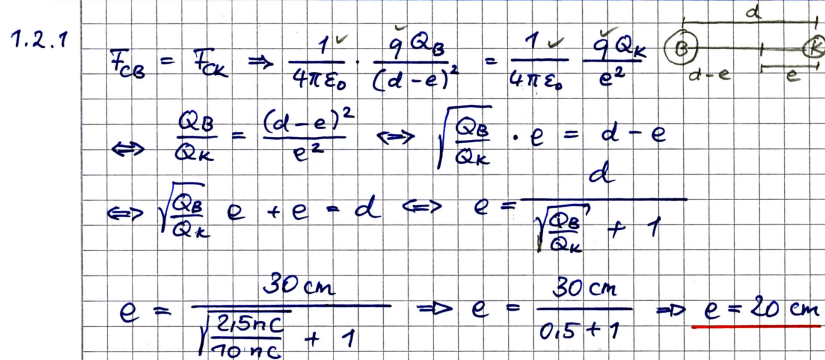 1.2.1
F_CB = F_CK ⇒ 1/(4πε₀) · q Q_B/(d-e)² = 1/(4πε₀) q Q_K/e²
d
B K
d-e e
⇔ Q_B/Q_K = (d-e)²/e² ⇔ √(Q_B/Q_K) · e = d - e
⇔ √(Q_B/Q_K) e + e = d ⇔ e = d/(√(Q_B/Q_K) + 1)
e = 30 cm/(√(2,5nC/10nC) + 1) ⇒ e = 30 cm/(0,5 + 1) ⇒ e = 20 cm